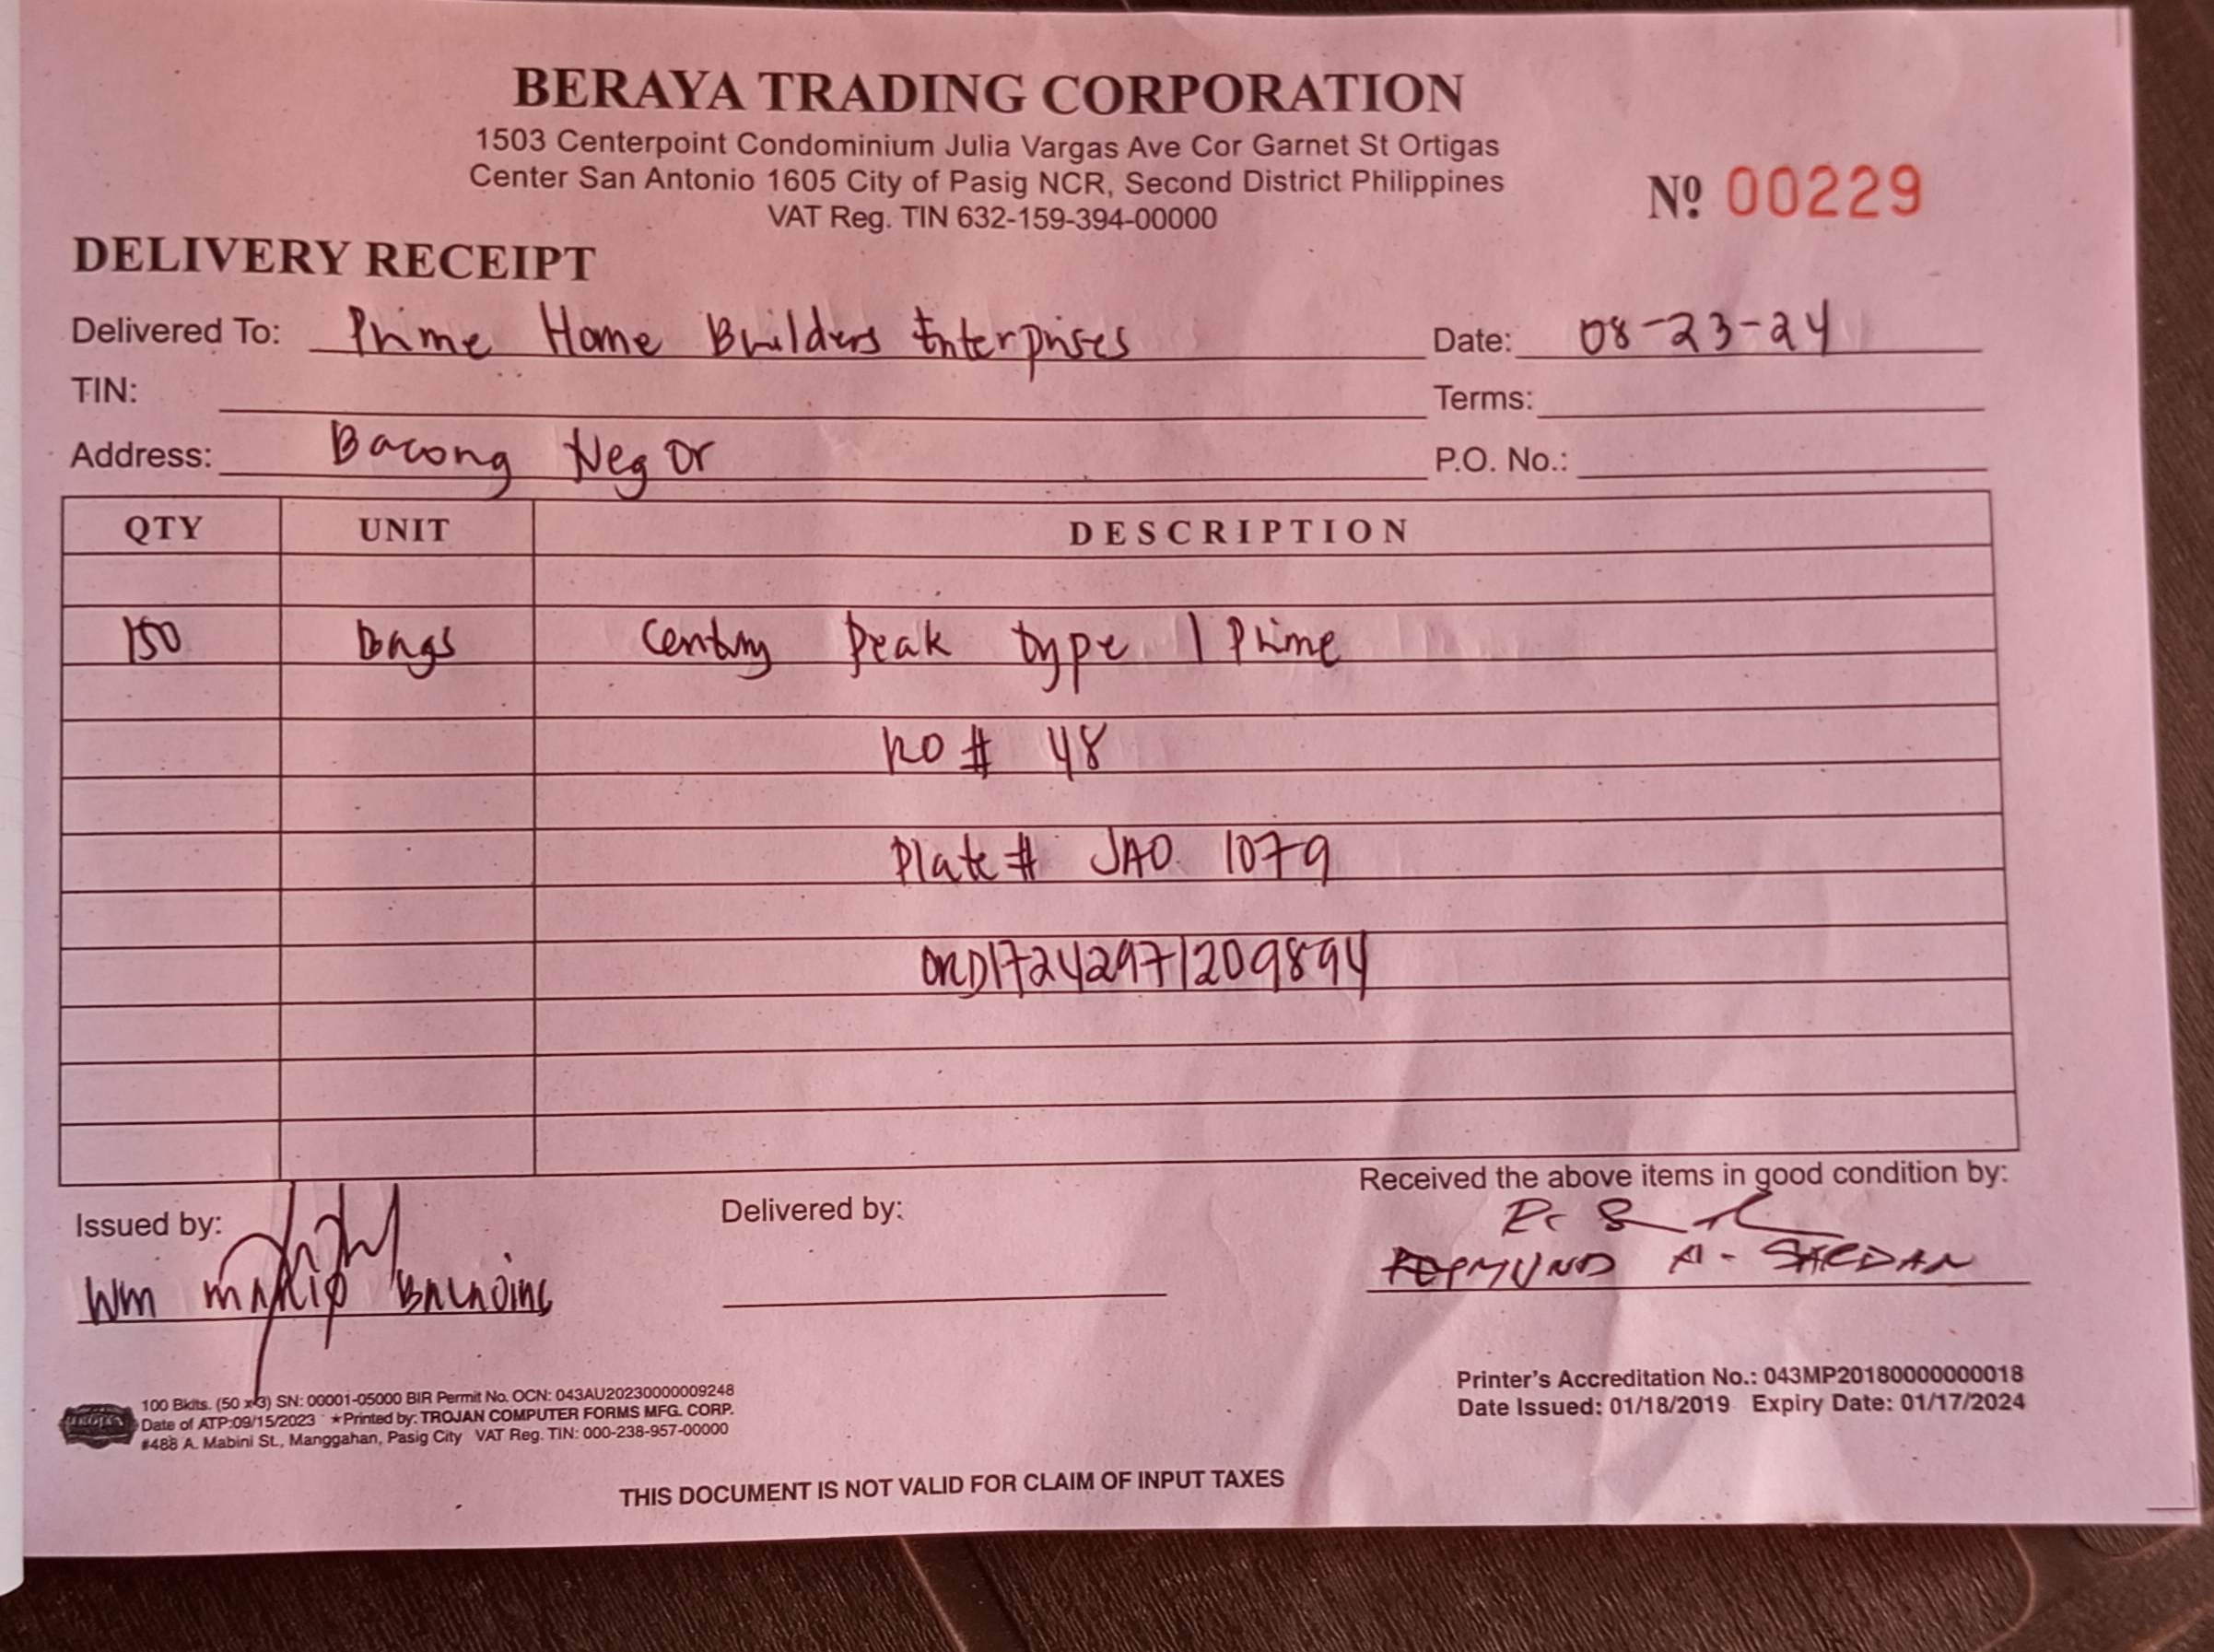 BERAYA TRADING CORPORATION
1503 Centerpoint Condominium Julia Vargas Ave Cor Garnet St Ortigas
Center San Antonio 1605 City of Pasig NCR, Second District Philippines
VAT Reg. TIN 632-159-394-00000
Nº 00229
DELIVERY RECEIPT
Delivered To: Prime Home Builders Enterprises Date: 08-23-24
TIN: Terms:
Address: Bacong Neg Or P.O. No.:
QTY UNIT DESCRIPTION
150 bags Century Peak type 1 Prime
RO # 48
Plate # JAO 1079
ORD17242971209894
Received the above items in good condition by:
Issued by: Delivered by:
Wm Mario
A. SARDAN
100 Bklts. (50 x 3) SN: 00001-05000 BIR Permit No. OCN: 043AU20230000009248
Date of ATP:09/15/2023 ★Printed by: TROJAN COMPUTER FORMS MFG. CORP.
#488 A. Mabini St., Manggahan, Pasig City VAT Reg. TIN: 000-238-957-00000
TROJAN
Printer's Accreditation No.: 043MP20180000000018
Date Issued: 01/18/2019 Expiry Date: 01/17/2024
THIS DOCUMENT IS NOT VALID FOR CLAIM OF INPUT TAXES